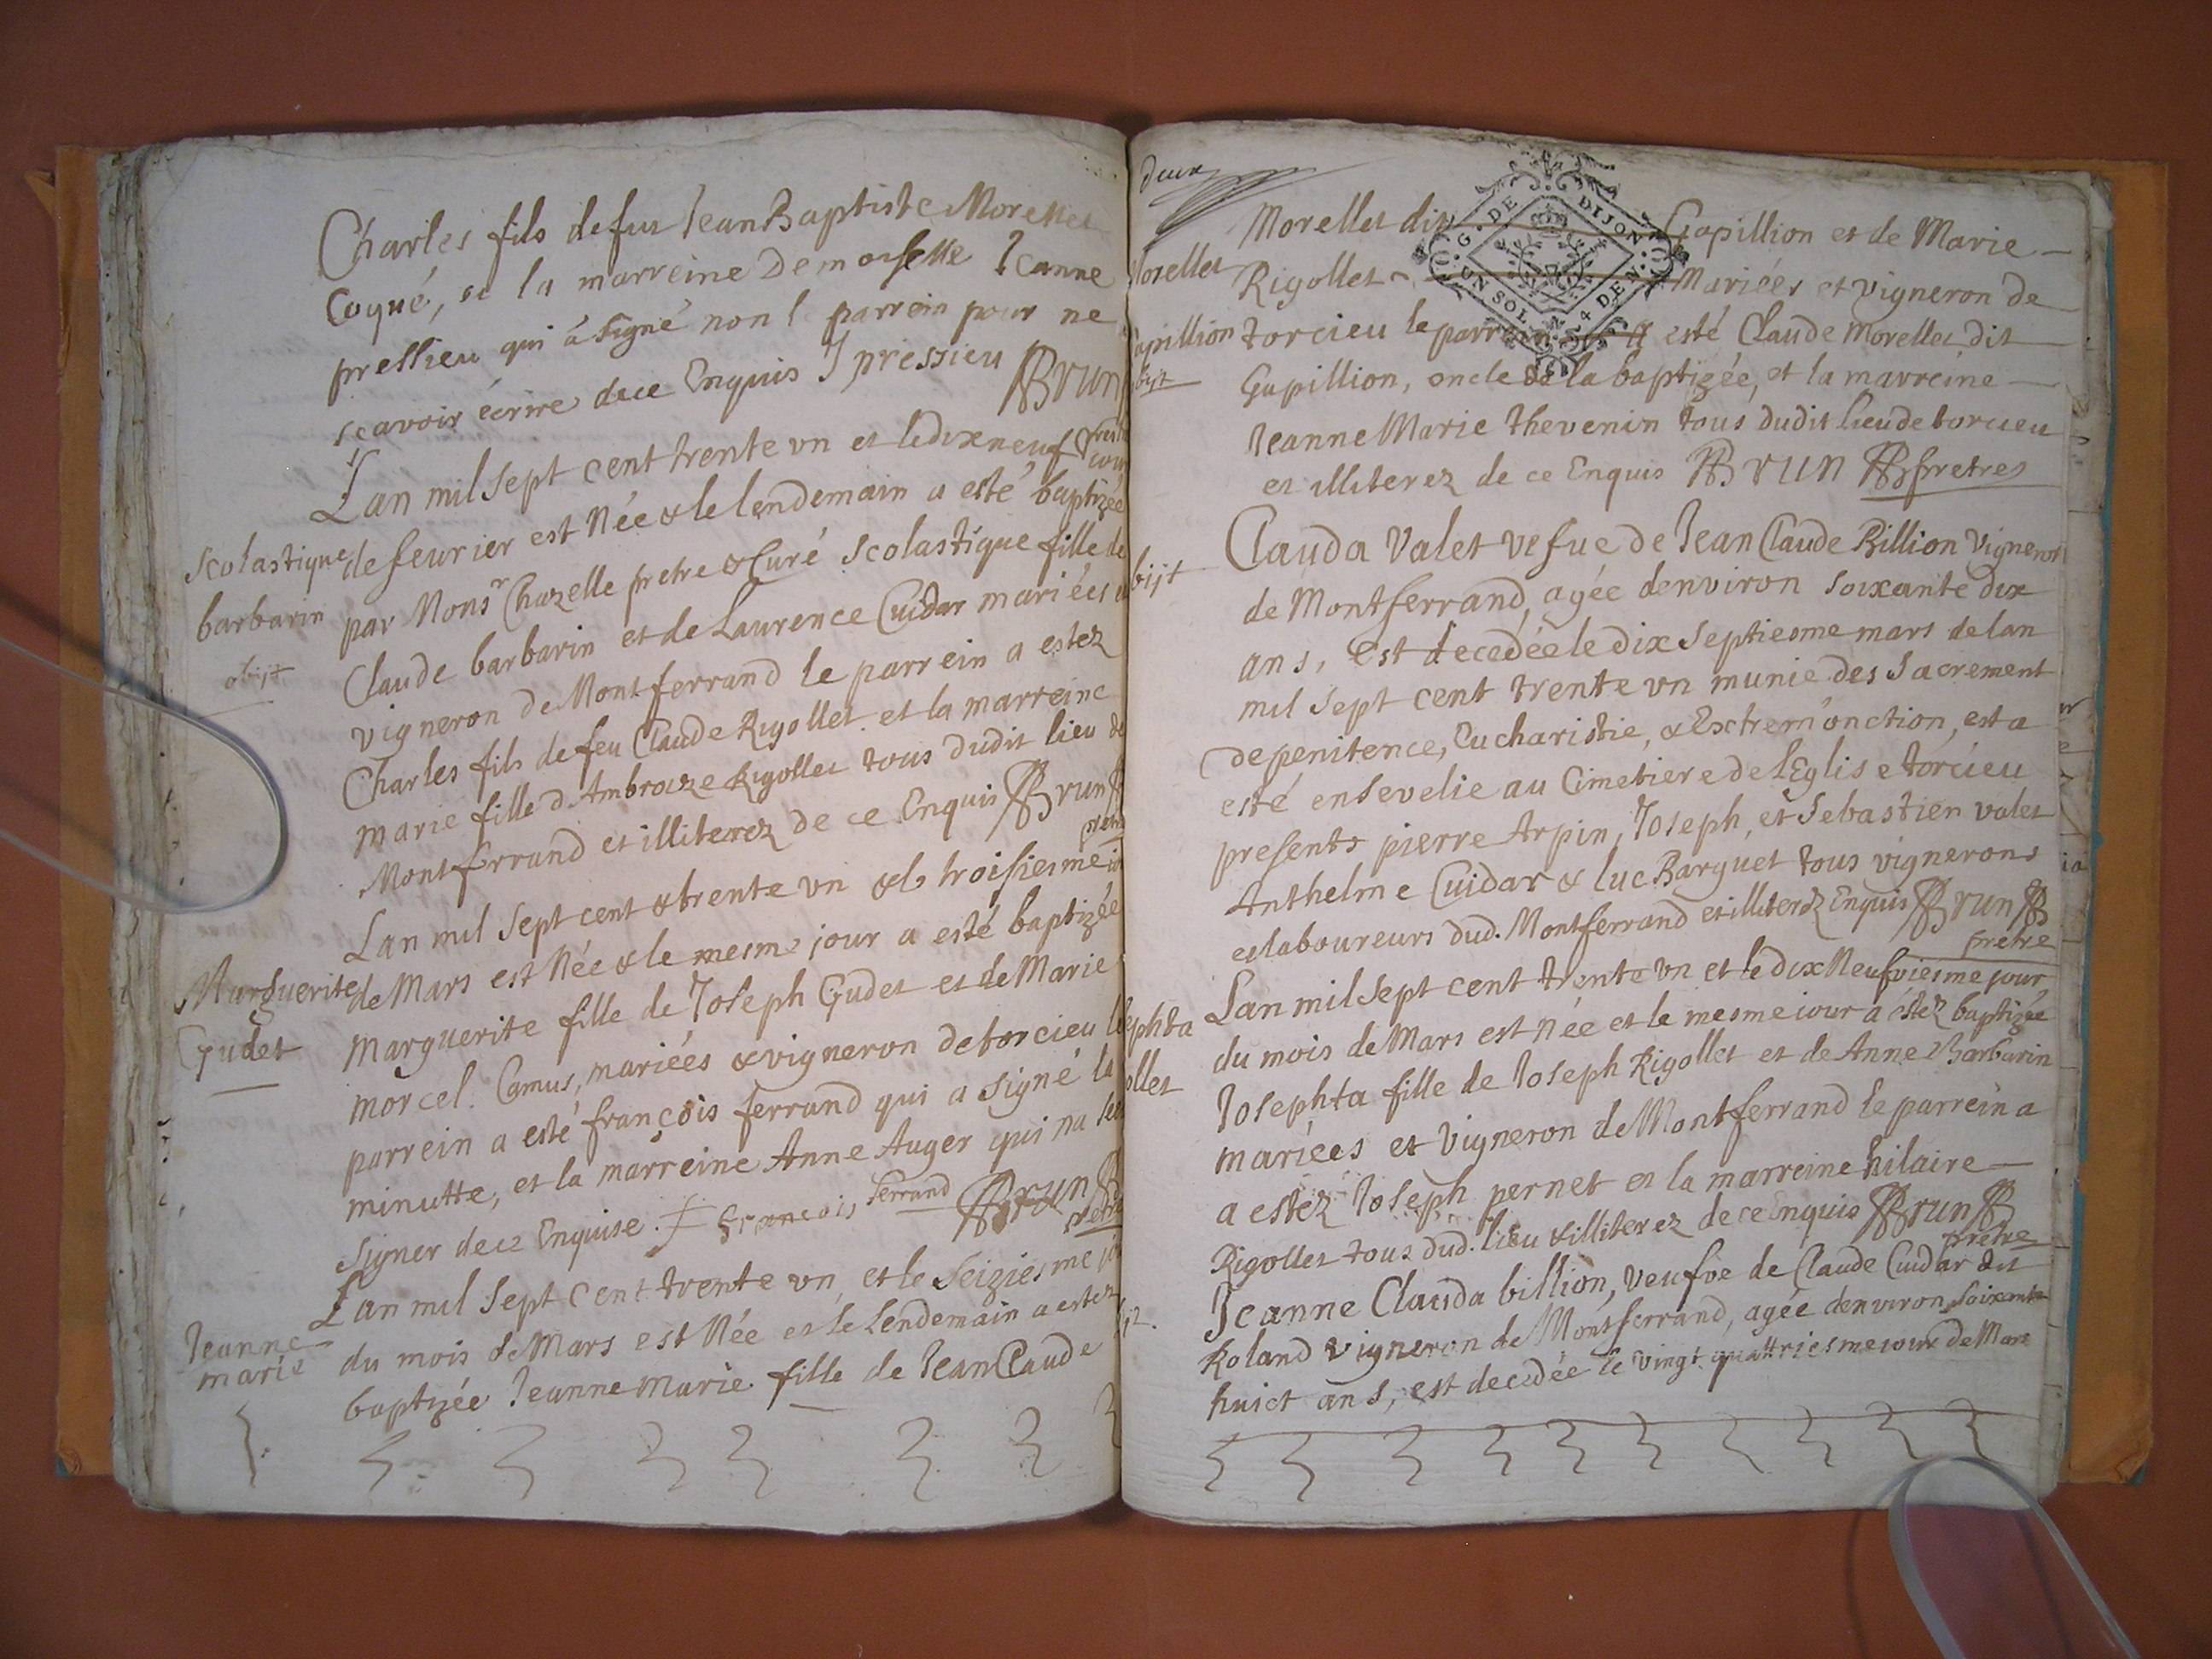 Charles fils defus Jean Baptiste Morellet
Coqué, et la marreine Demoiselle Jeanne
pressieu qui à signé non l parrein pour ne
scavoir écrire dece Enquis J pressieu Brun
Lan mil sept cent trente vn et ledixneuf
Scolastique barbarin obijt
de feurier est Née & le lendemain a esté baptizée
par Monsr Chazelle pretre & Curé Scolastique fille de
Claude barbarin et de Laurence Cuidar mariées
vigneron de Montferrand le parrein a estez
Charles fils de feu Claude Rigollet et la marreine
marie fille d Ambroize Rigollet tous dudit lieu de
Montferrand et illiterez de ce Enquis Brun
pretre
Lan mil sept cent & trente vn & le troisiesme
Marguerite Gudet
de Mars est Née & le mesme jour a esté baptizée
marguerite fille de Joseph Gudet et de Marie
morcel Camus, mariées & vigneron de torcieu le
parrein a esté françois ferrand qui a signé la
minutte, et la marreine Anne Auger qui na
signer dece Enquise. françois ferrand Brun
pretre
Lan mil sept cent trente vn, et le Seiziesme
Jeanne marie
du mois de Mars est Née et le lendemain a estez
baptizée Jeanne Marie fille de Jean Claude
deux
G. DE DIJON
UN SOL. 4 DEN.
Morellet dit Gapillion et de Marie
Morellet Gapillion obijt
Rigollet Mariées et vigneron de
torcieu le parrein a esté Claude Morellet dit
Gapillion, oncle de la baptizée, et la marreine
Jeanne Marie thevenin tous dudit lieu de torcieu
et illiterez de ce Enquis Brun pretres
obijt
Clauda Valet vefue de Jean Claude Billion Vigneron
de Montferrand, agée denviron soixante dix
ans, est decedée le dix septiesme mars de lan
mil sept cent trente vn munie des Sacrement
de penitence, Eucharistie, & Extrem'onction, est a
esté ensevelie au Cimetiere de l'Eglise torcieu
presents pierre Arpin, Joseph, et Sebastien valet
Anthelme Cuidar & luc Barguet tous vignerons
et laboureurs dud. Montferrand et illiterez Enquis Brun
pretre
Lan mil sept cent trente vn et le dix Neufviesme jour
Josephta Rigollet
du mois de Mars est née et le mesme iour a estez baptizée
Josephta fille de Joseph Rigollet et de Anne Barbarin
mariées et vigneron de Montferrand le parrein a
a estez Joseph pernet et la marreine hilaire
Rigollet tous dud. lieu & illiterez de ce Enquis Brun
pretre
Jeanne Clauda billion, veufve de Claude Cuidar dit
Roland vigneron de Montferrand, agée denviron soixante
huict ans, est decedée le vingt quattriesme iour de Mars